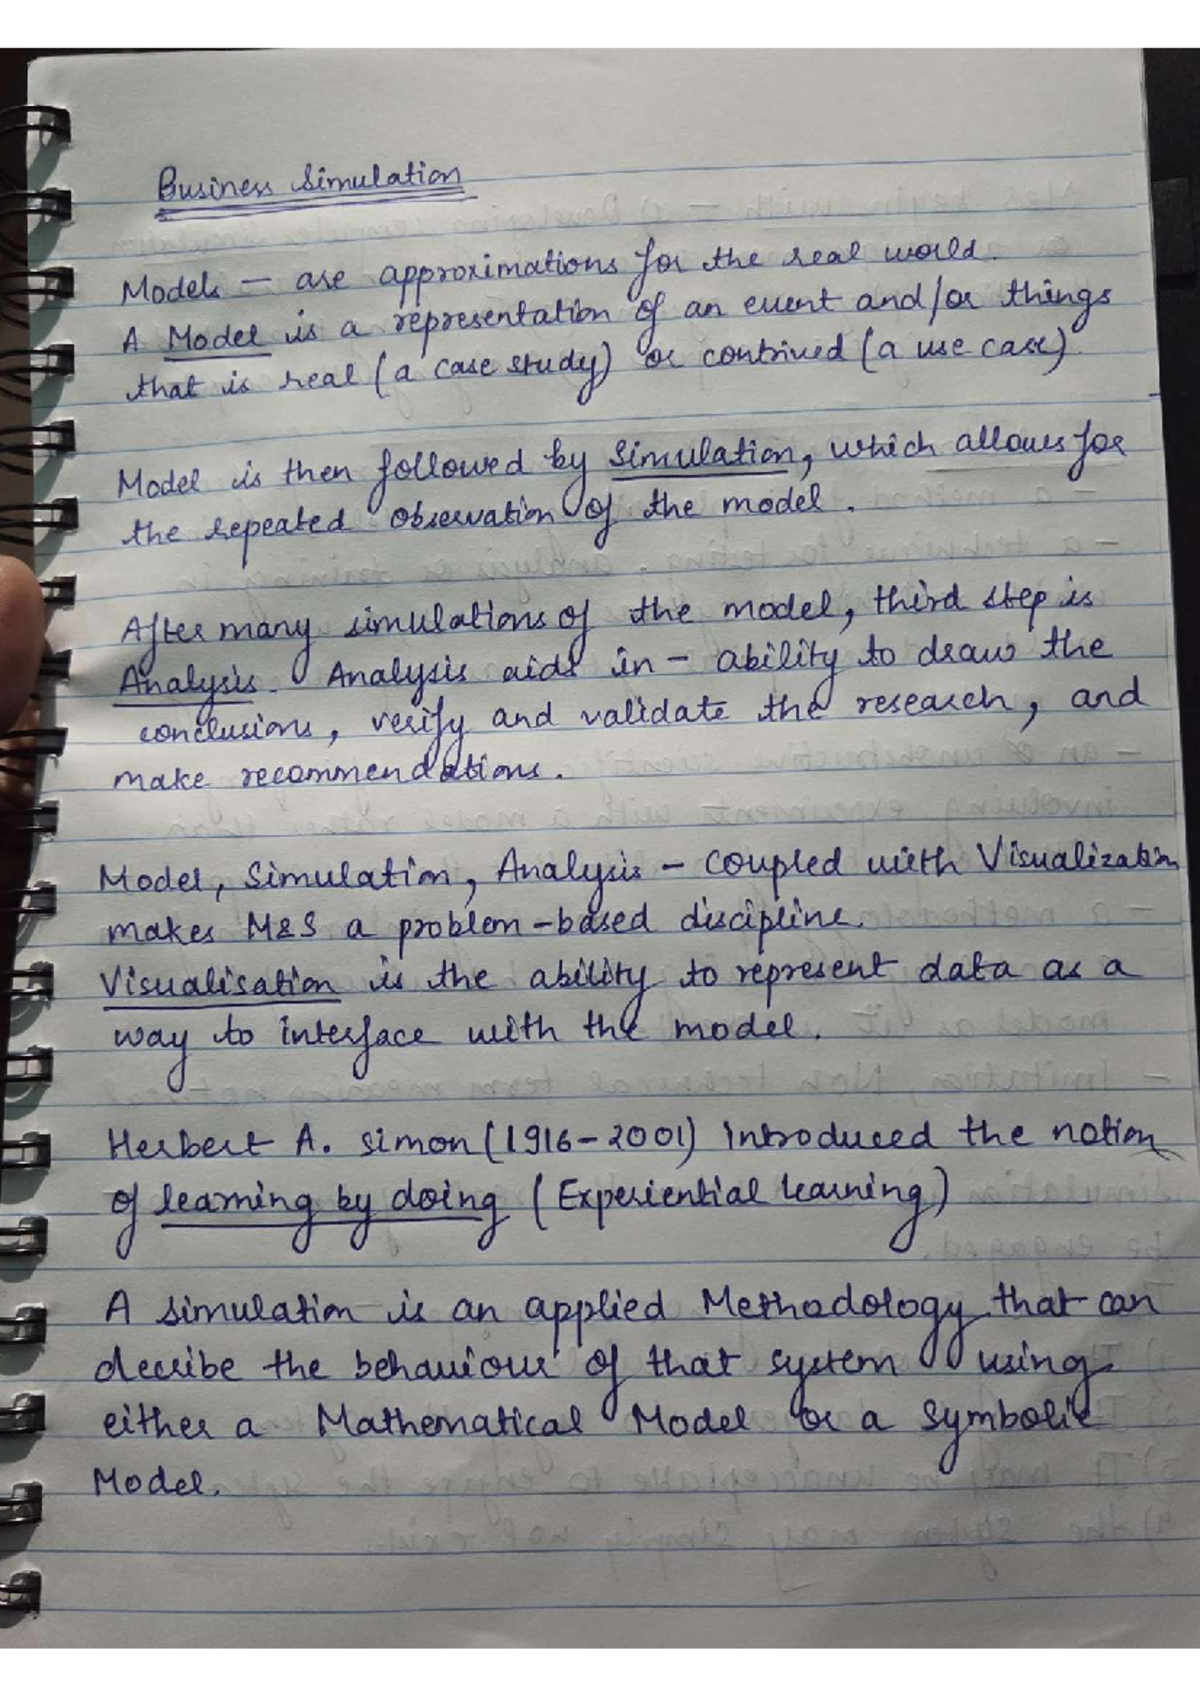 Business Simulation
Models — are approximations for the real world.
A Model is a representation of an event and/or things
that is real (a case study) or contrived (a use case).
Model is then followed by Simulation, which allows for
the repeated observation of the model.
After many simulations of the model, third step is
Analysis. Analysis aids in - ability to draw the
conclusions, verify and validate the research, and
make recommendations.
Model, Simulation, Analysis - Coupled with Visualization
makes M&S a problem-based discipline.
Visualisation is the ability to represent data as a
way to interface with the model.
Herbert A. Simon (1916-2001) introduced the notion
of learning by doing (Experiential learning)
A simulation is an applied Methodology that can
describe the behaviour of that system using
either a Mathematical Model or a Symbolic
Model.